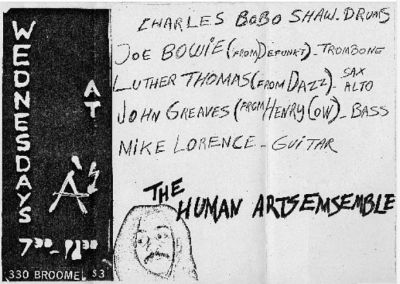 WEDNESDAYS
AT
A's
730-1130
330 BROOME $3
CHARLES BOBO SHAW. DRUMS
JOE BOWIE (FROM DEFUNKT) - TROMBONE
LUTHER THOMAS (FROM DAZZ) - SAX ALTO
JOHN GREAVES (FROM HENRY COW) - BASS
MIKE LORENCE - GUITAR
THE
HUMAN ARTS EMSEMBLE